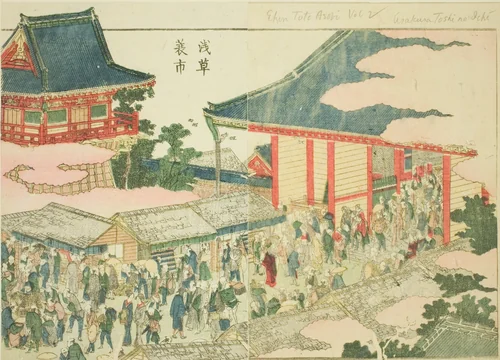 Ehon Toto Asobi Vol 2/ Asakusa Toshi no Ichi
浅草
蓑市